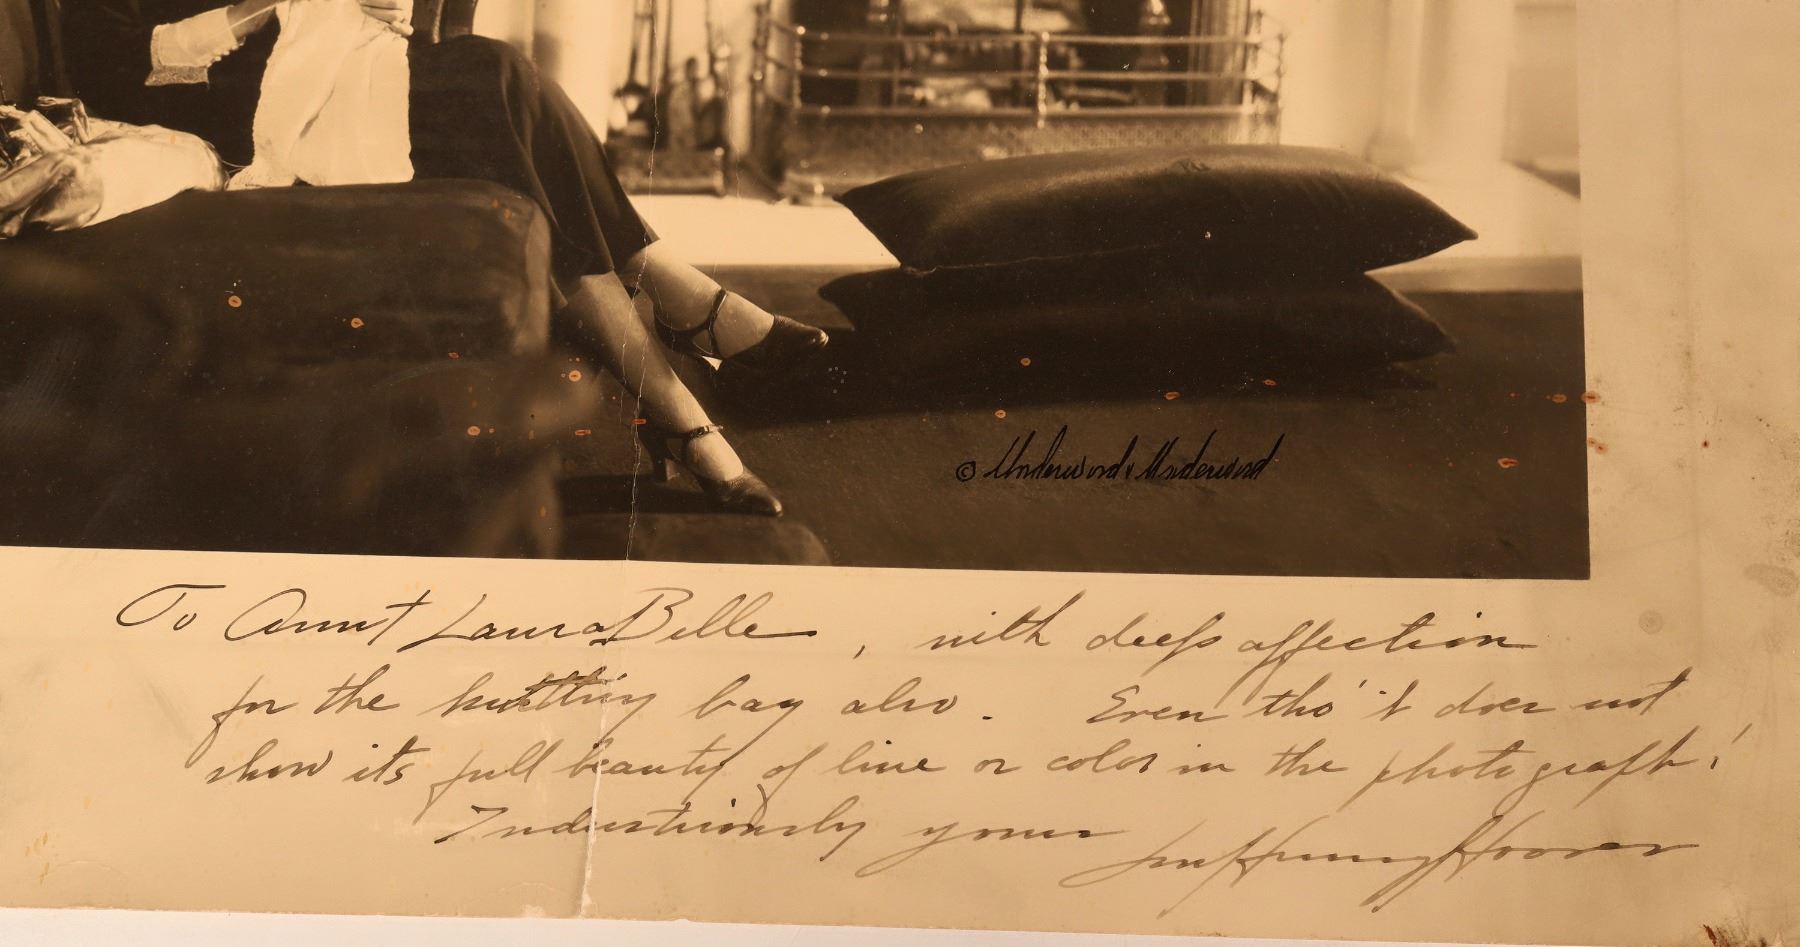 © Underwood & Underwood
To Aunt LauraBelle, with deep affection
for the knitting bag also. Even tho' 't does not
show its full beauty of line or color in the photograph!
Industriously yours
Lou Henry Hoover